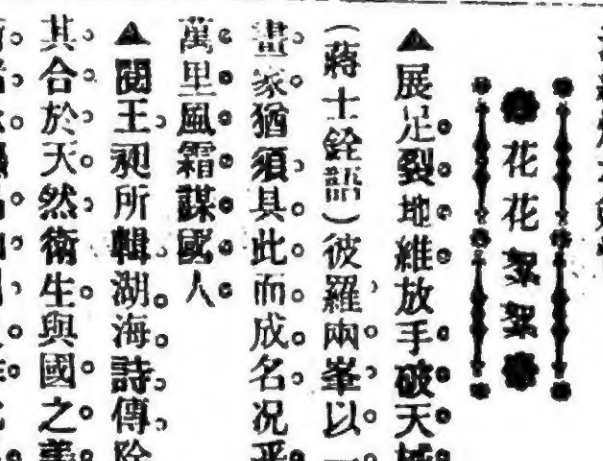 花花絮絮
▲展足裂地維放手破天
(蔣士銓語)彼羅兩峯以一
畫家猶須具此而成名况乎
萬里風霜謀國人
▲閱王昶所輯湖海詩傳除
其合於天然衛生與國之善